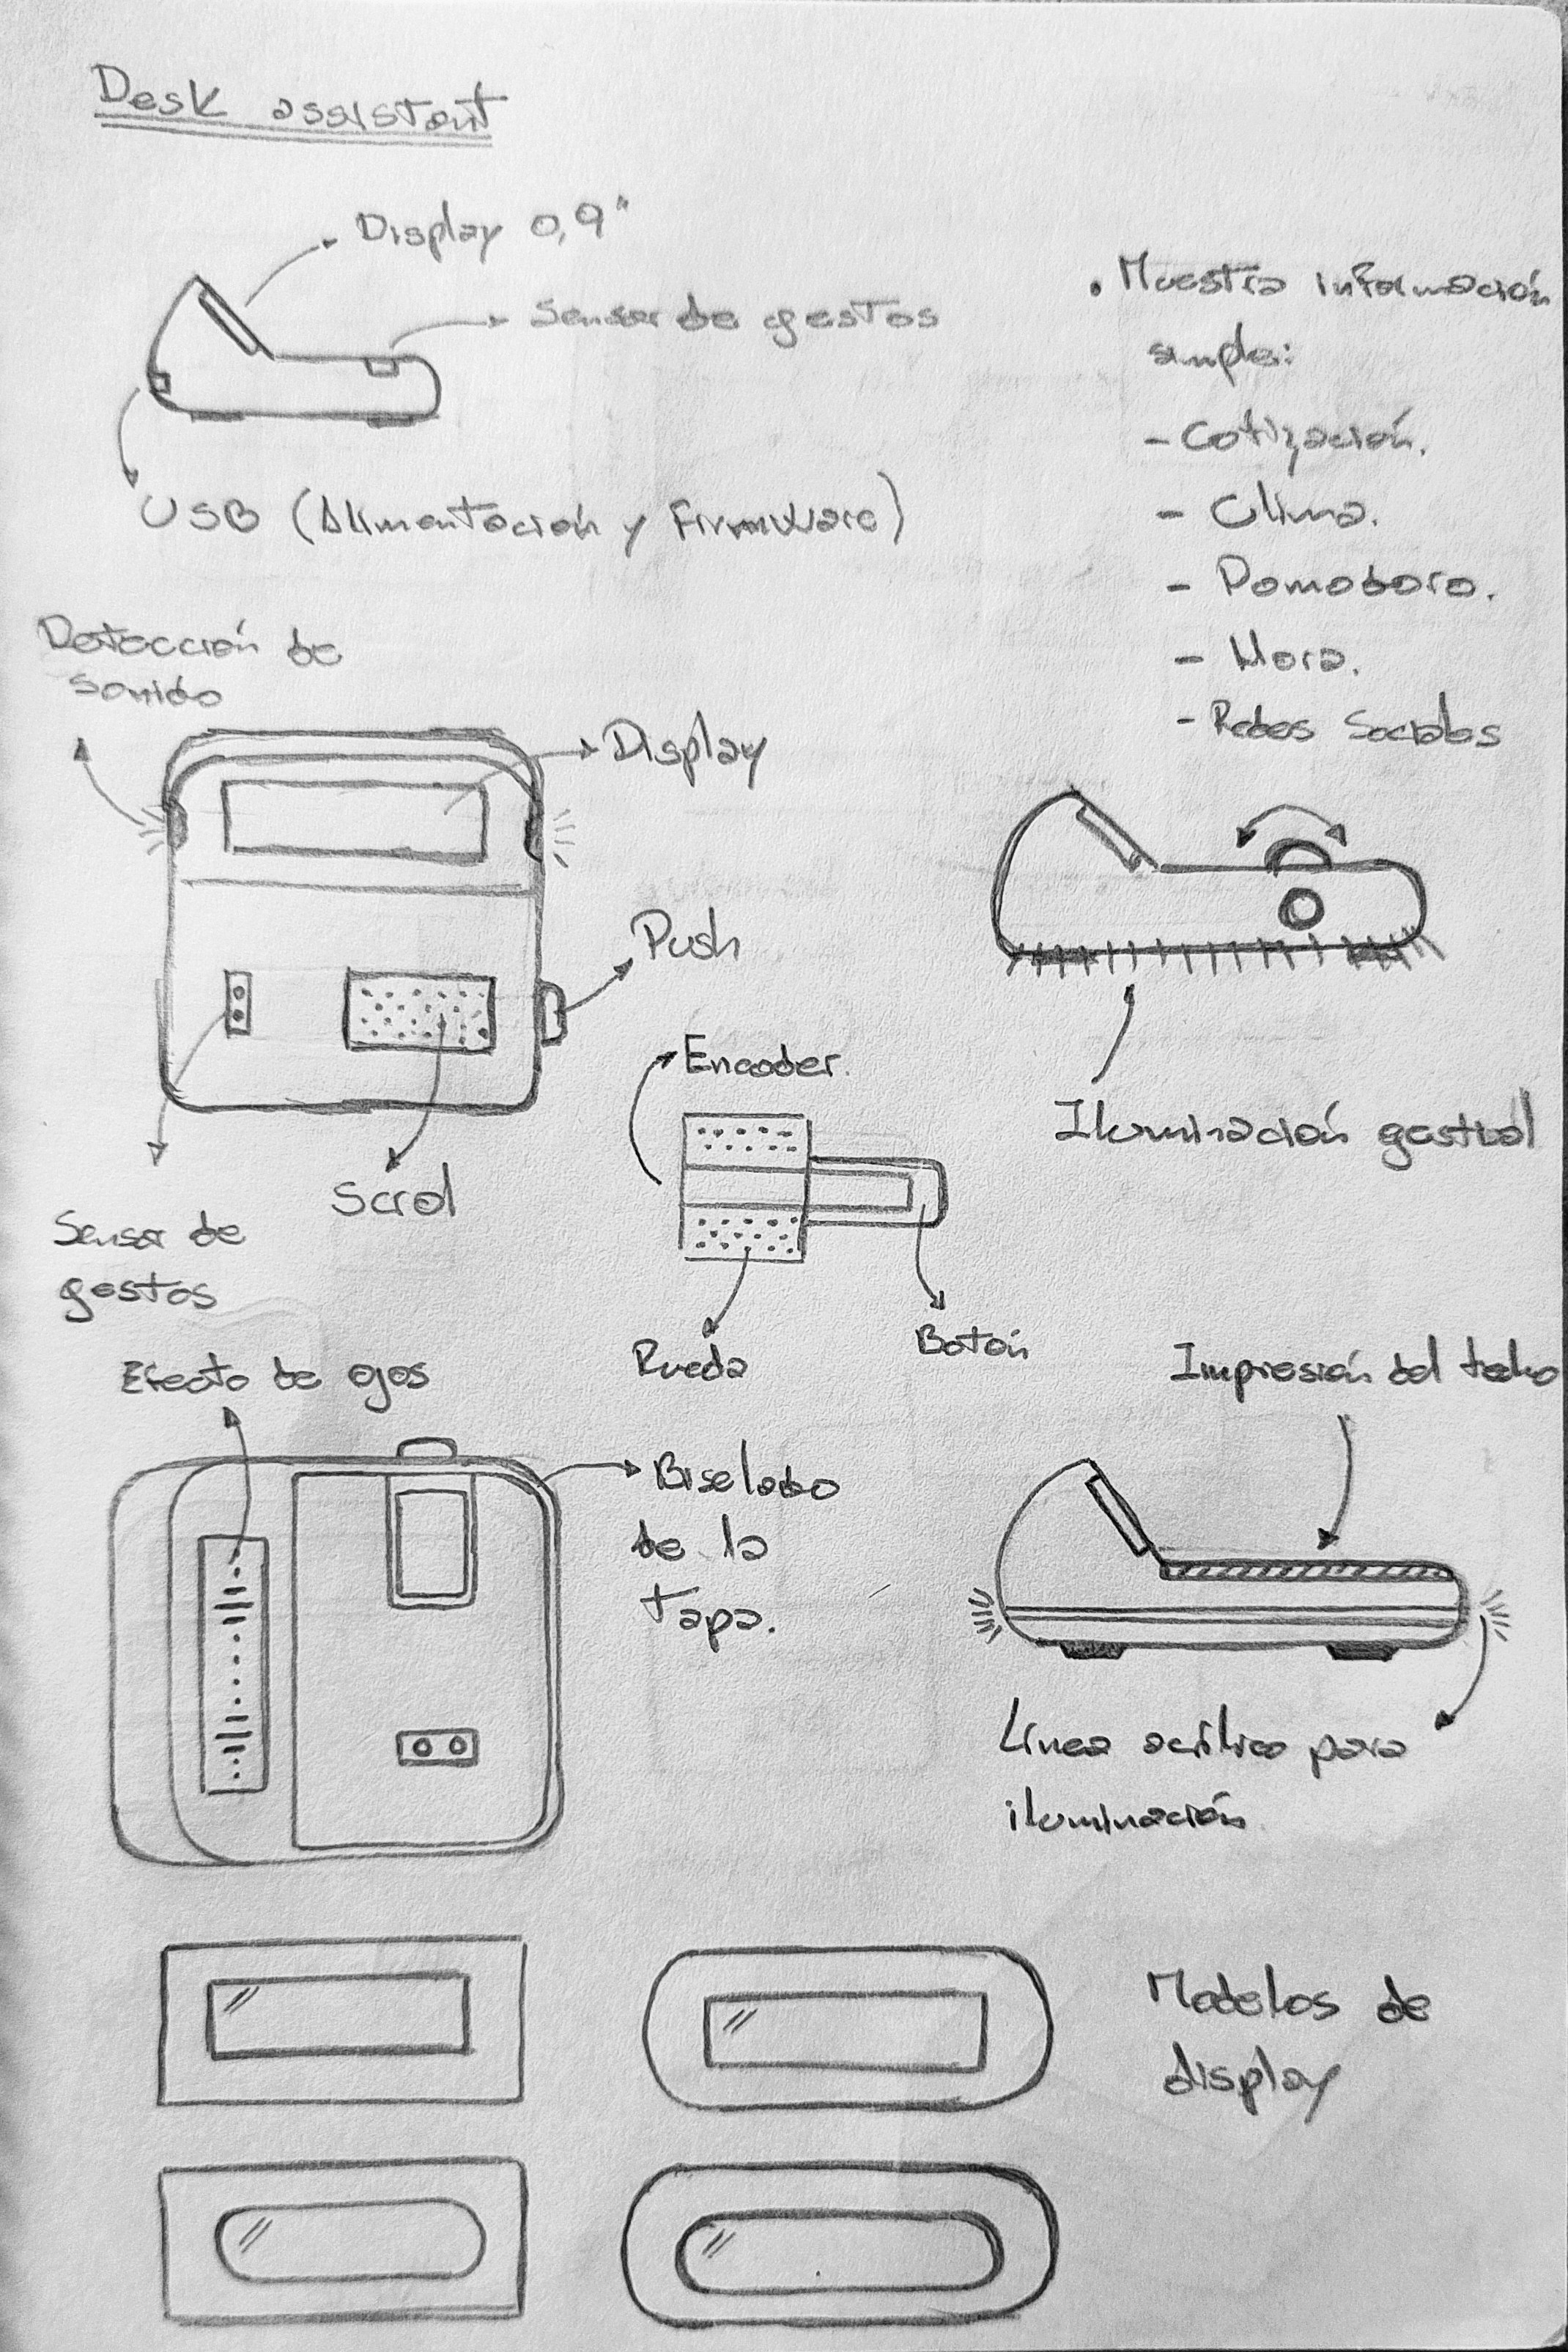 Desk assistant
Display 0,9"
Sensor de gestos
USB (Alimentación y Firmware)
• Muestra información
simple:
- Cotización.
- Clima.
- Pomodoro.
- Hora.
- Redes Sociales
Detección de
sonido
Display
Push
Scrol
Sensor de
gestos
Encoder.
Rueda
Botón
Iluminación gestual
Efecto de ojos
Biselado
de la
tapa.
Impresión del techo
Línea acrílico para
iluminación
Modelos de
display